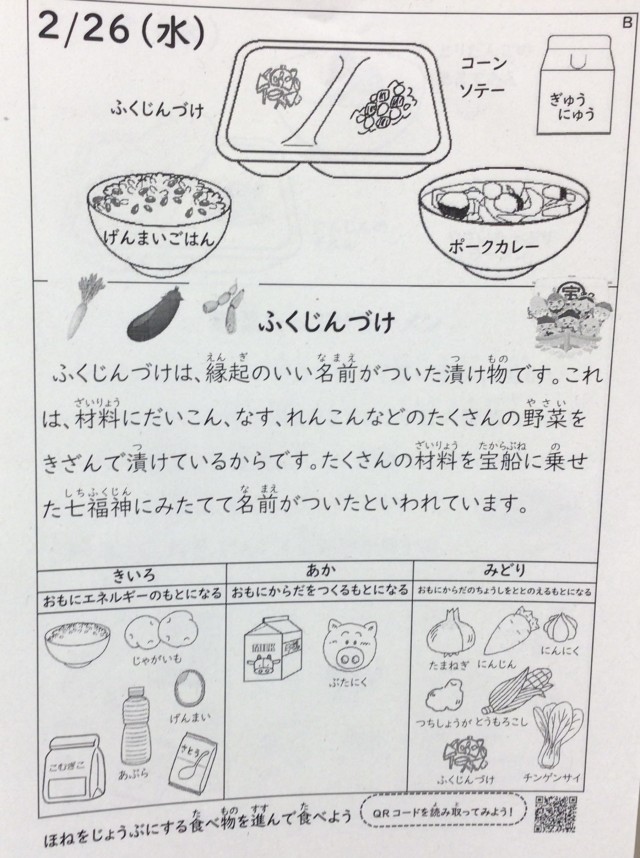 B
2/26(水)
ふくじんづけ
コーン
ソテー
ぎゅう
にゅう
げんまいごはん
ポークカレー
宝
ふくじんづけ
ふくじんづけは、縁起のいい名前がついた漬け物です。これ
は、材料にだいこん、なす、れんこんなどのたくさんの野菜を
きざんで漬けているからです。たくさんの材料を宝船に乗せ
た七福神にみたてて名前がついたといわれています。
きいろ
あか
みどり
おもにエネルギーのもとになる
おもにからだをつくるもとになる
おもにからだのちょうしをととのえるもとになる
じゃがいも
げんまい
こむぎこ
あぶら
さとう
MILK
ぶたにく
たまねぎ
にんじん
にんにく
つちしょうが
とうもろこし
ふくじんづけ
チンゲンサイ
ほねをじょうぶにする食べ物を進んで食べよう
QRコードを読み取ってみよう!